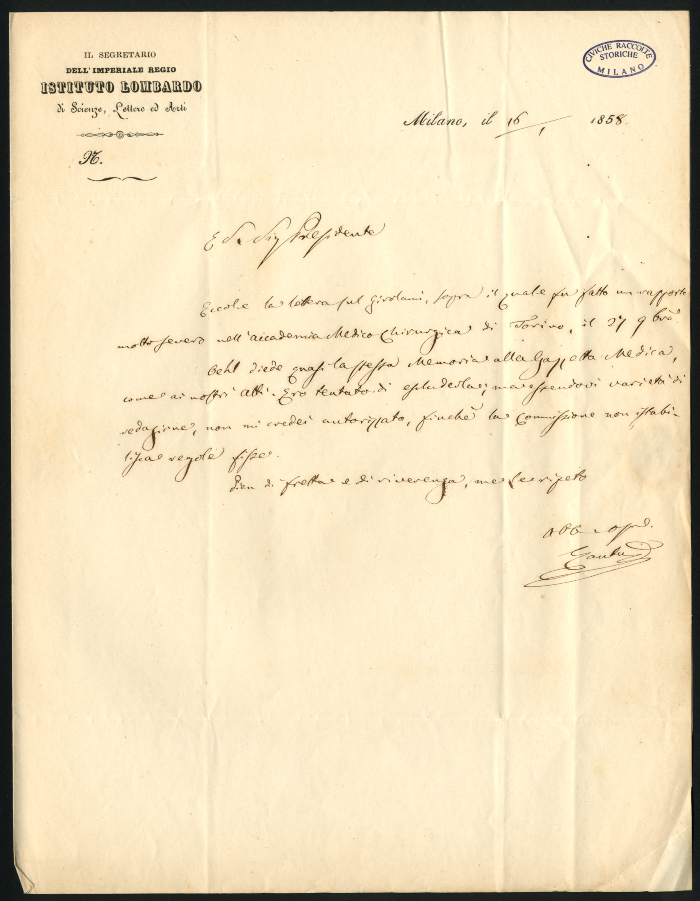 IL SEGRETARIO
DELL'IMPERIALE REGIO
ISTITUTO LOMBARDO
di Scienze, Lettere ed Arti
N.
CIVICHE RACCOLTE
STORICHE
MILANO
Milano, il 16/1 1858
E S. Sig Presidente
Eccole la lettera sul Girolani, sopra il quale fu fatto un rapporto
molto severo nell'accademia Medico Chirurgica di Torino, il 27 9bre
diede quasi la stessa Memoria alla Gazzetta Medica,
come ai nostri Atti. Ero tentato di escluderla; ma essendovi varietà di
redazione, non mi credei autorizzato, finchè la Commissione non istabi-
lisca regole fisse.
Pien di fretta e di riverenza, me Le ripeto